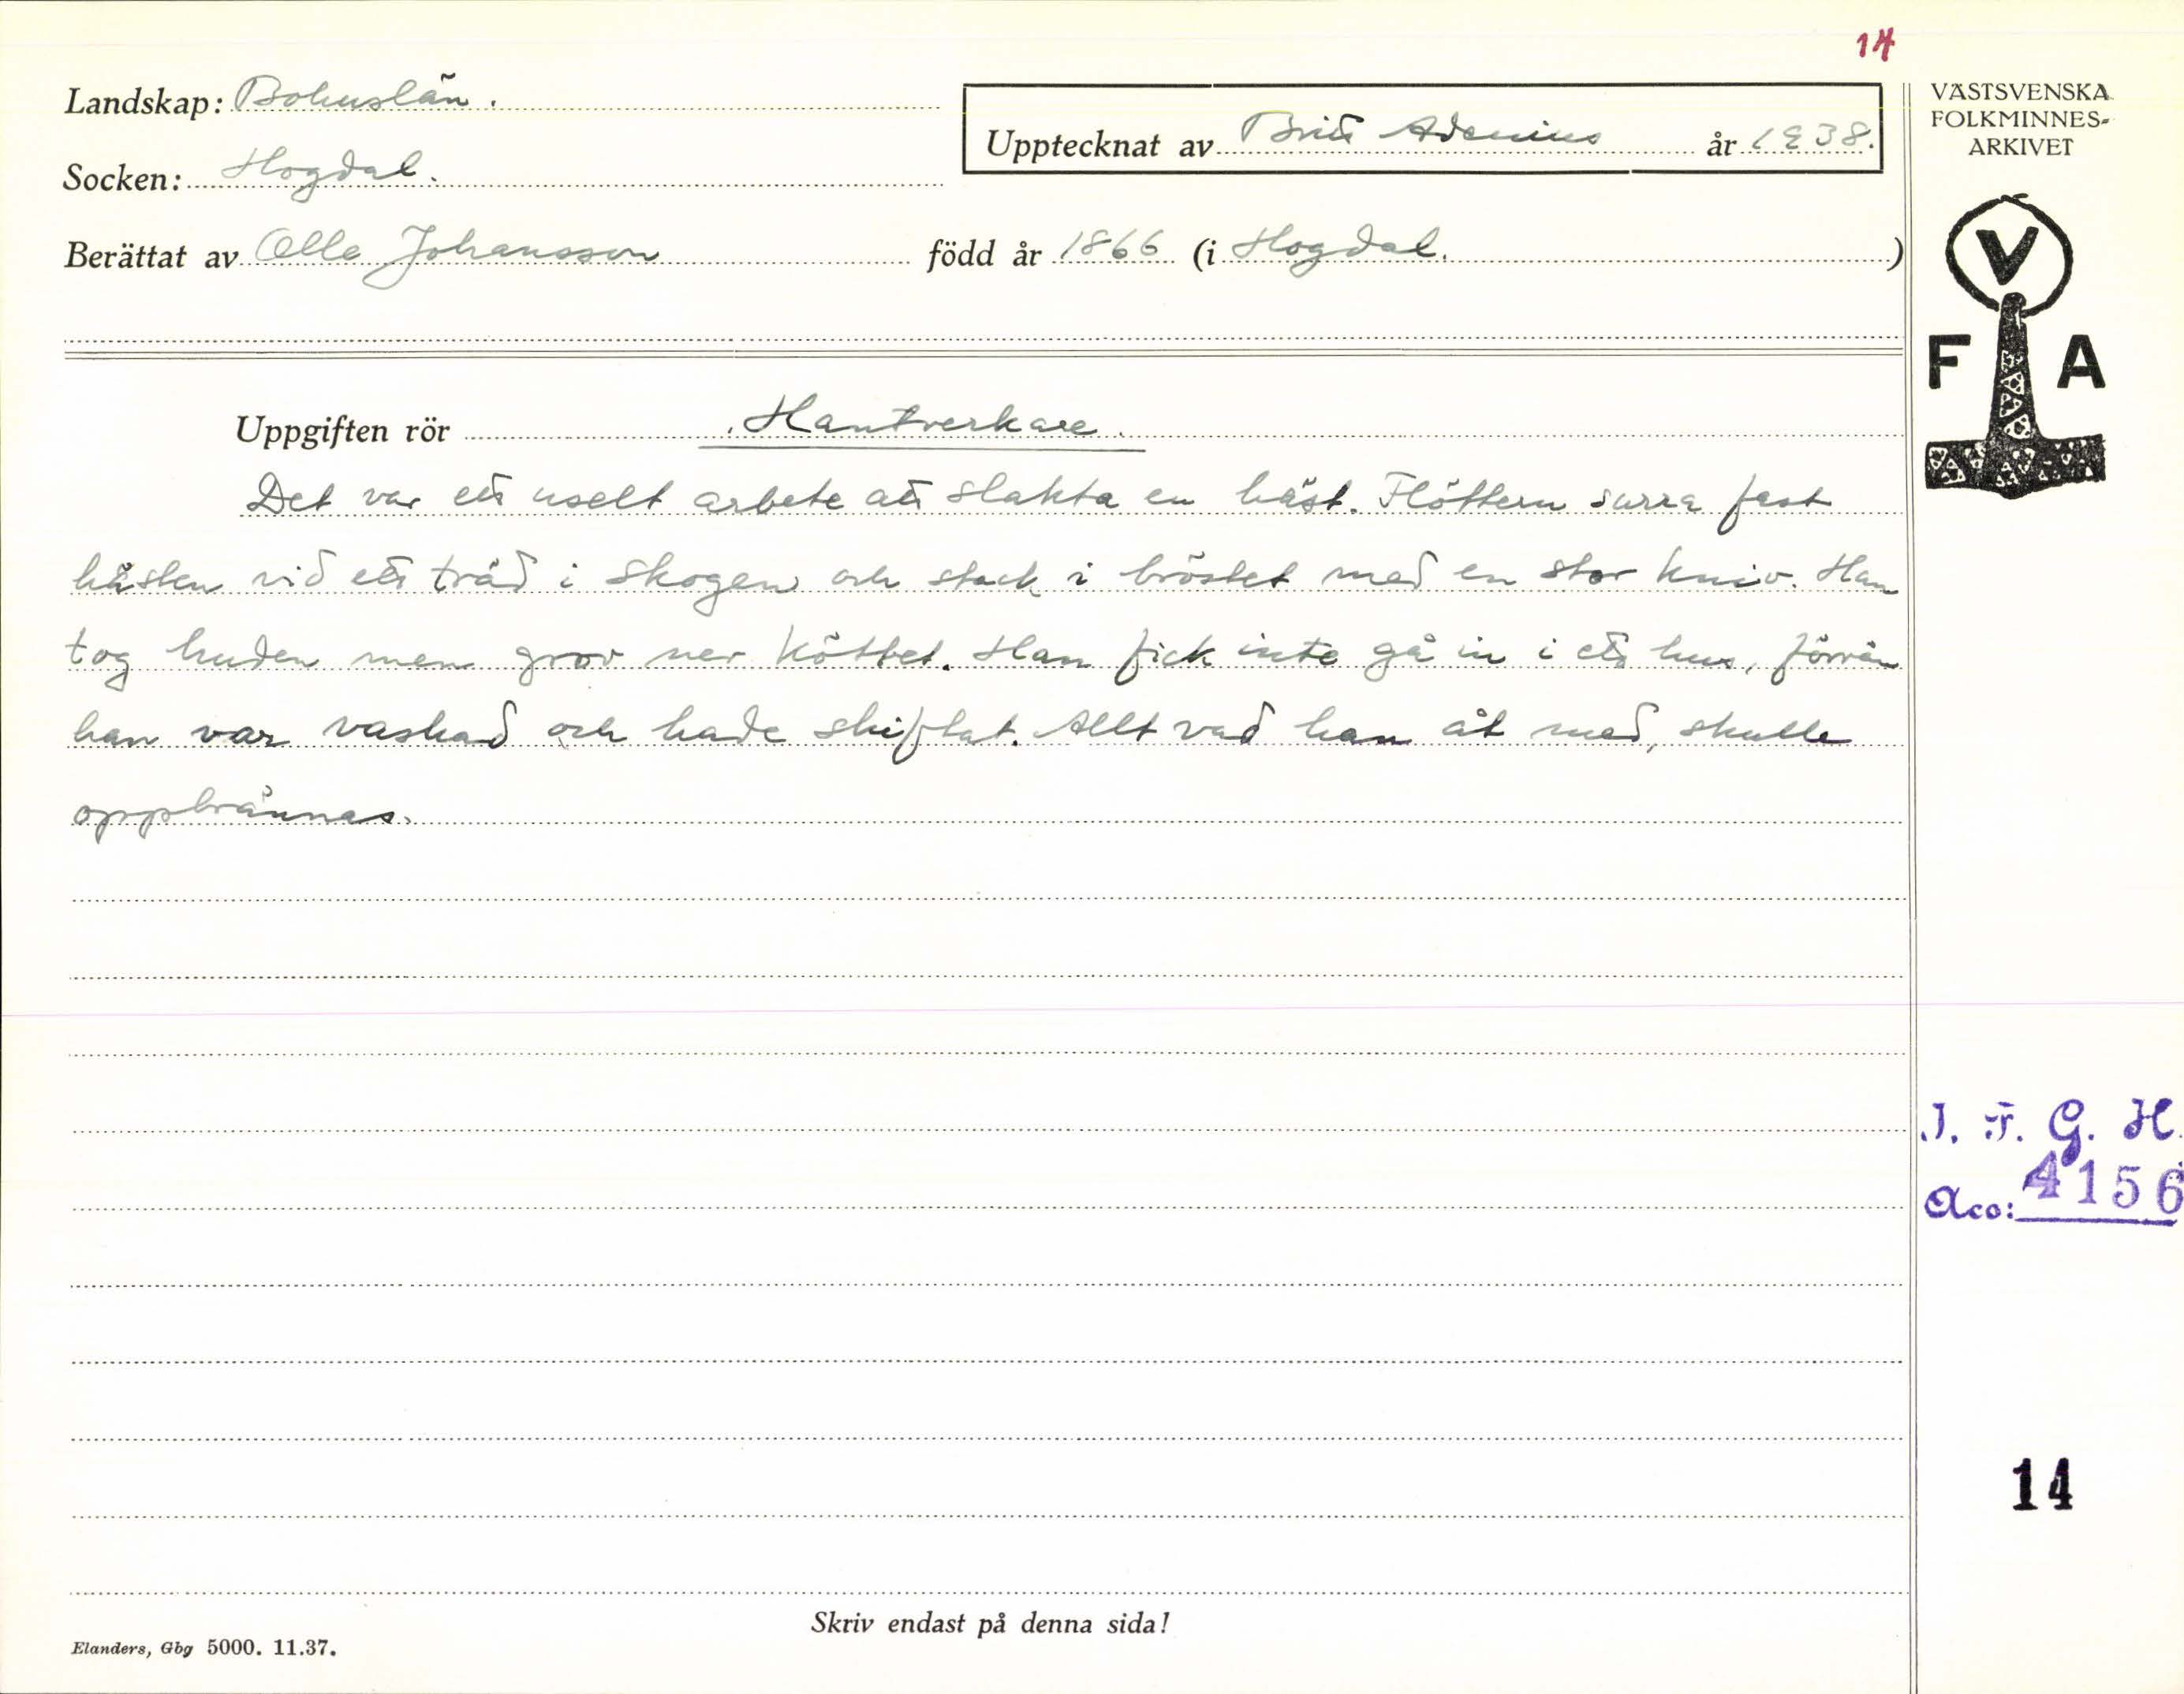 14
Landskap: Bohuslän.
Upptecknat av Britt Adenius år 1938.
Socken: Hogdal.
Berättat av Olle Johansson född år 1866 (i Hogdal.)
Uppgiften rör Hantverkare.
Det var ett uselt arbete att slakta en häst. Flöttern surra fast
hästen vid ett träd i skogen och stack i bröstet med en stor kniv. Han
tog huden men grov ner köttet. Han fick inte gå in i ett hus, förrän
han var vaskad och hade skiftat. Allt vad han åt med, skulle
oppbrännas.
Skriv endast på denna sida!
Elanders, Gbg 5000. 11.37.
VÄSTSVENSKA
FOLKMINNES-
ARKIVET
V
F A
I. F. G. H.
Acc: 4156
14